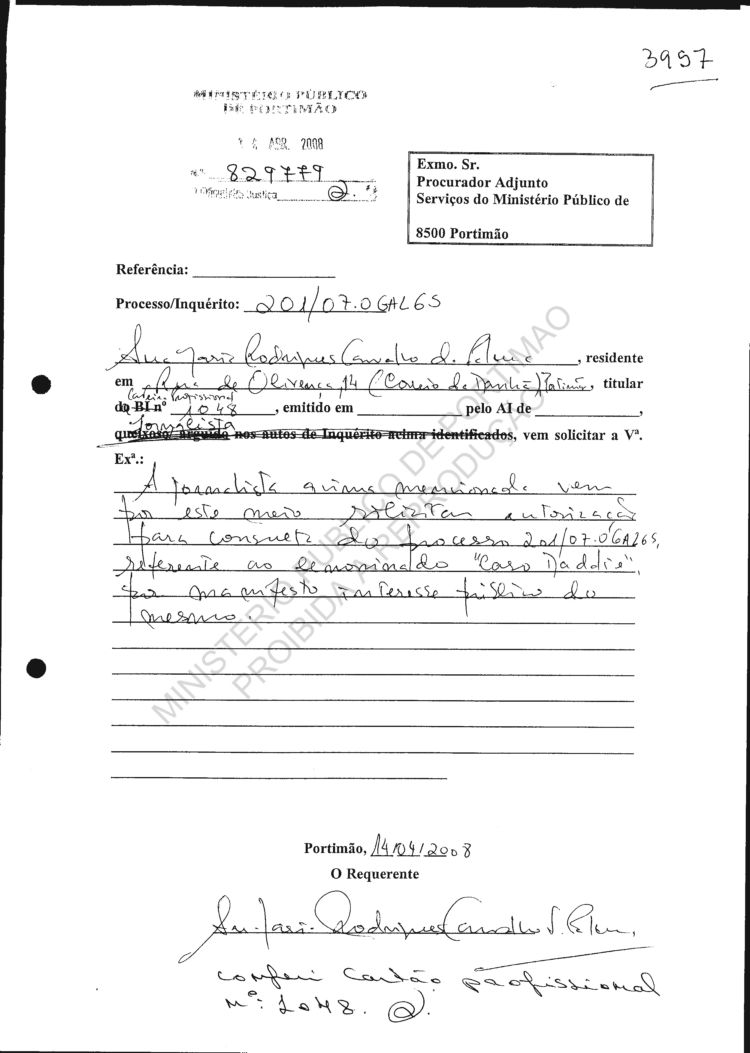 3997
MINISTÉRIO PÚBLICO
DE PORTIMÃO
14 ABR. 2008
N.º 829779
O Oficial de Justiça
Exmo. Sr.
Procurador Adjunto
Serviços do Ministério Público de
8500 Portimão
Referência:
Processo/Inquérito: 201/07.0GALGS
Ana Maria Rodrigues Carvalho , residente
em Rua de Olivença, 14 (Correio da Manhã) Portimão, titular
Carteira Profissional
do BI nº 1048 , emitido em pelo AI de ,
Jornalista
queixoso/arguido nos autos de Inquérito acima identificados, vem solicitar a Vª.
Exª.:
A jornalista acima mencionada vem
por este meio solicitar autorização
para consulta do processo 201/07.0GALGS,
referente ao denominado "Caso Maddie",
por manifesto interesse público do
mesmo.
MINISTÉRIO PÚBLICO DE PORTIMÃO
PROIBIDA A REPRODUÇÃO
Portimão, 14/04/2008
O Requerente
Ana Maria Rodrigues Carvalho
conferi cartão profissional
nº: 1048.